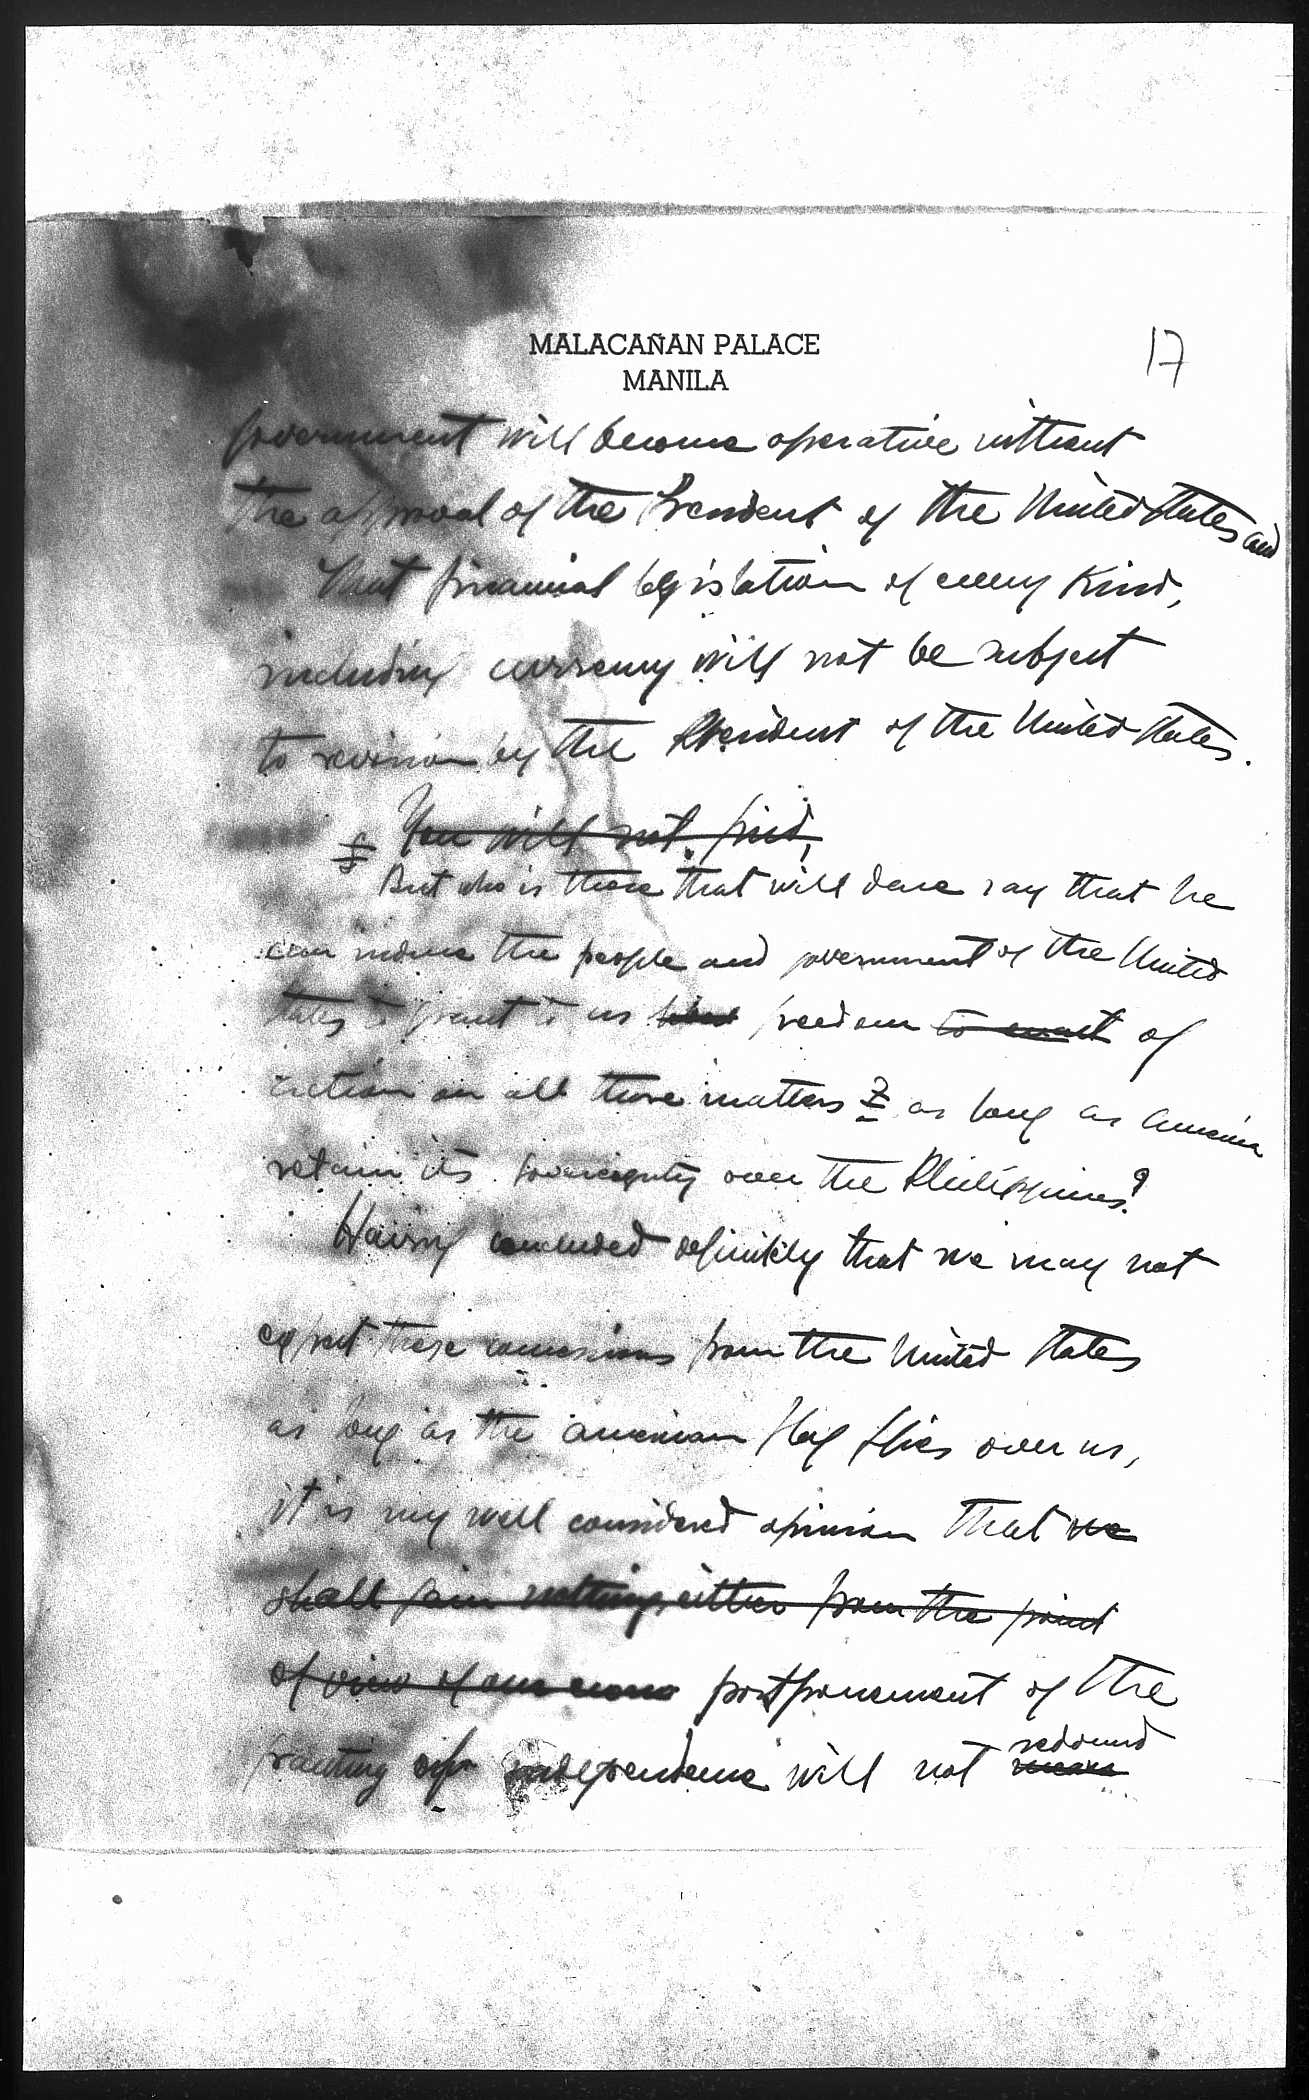 MALACAÑAN PALACE
MANILA
17
government will become operative without
the approval of the President of the United States and
that financial legislation of every kind,
including currency will not be subject
to revision by the President of the United States.
You will not find,
But who is there that will dare say that he
can induce the people and government of the United
States to grant to us freedom to enact of
action on all these matters as long as America
retain its sovereignty over the Philippines?
Having concluded definitely that we may not
expect these concessions from the United States
as long as the American flag flies over us,
it is my well considered opinion that we
shall gain nothing either from the point
of view of our postponement of the
redound
granting of independence will not means